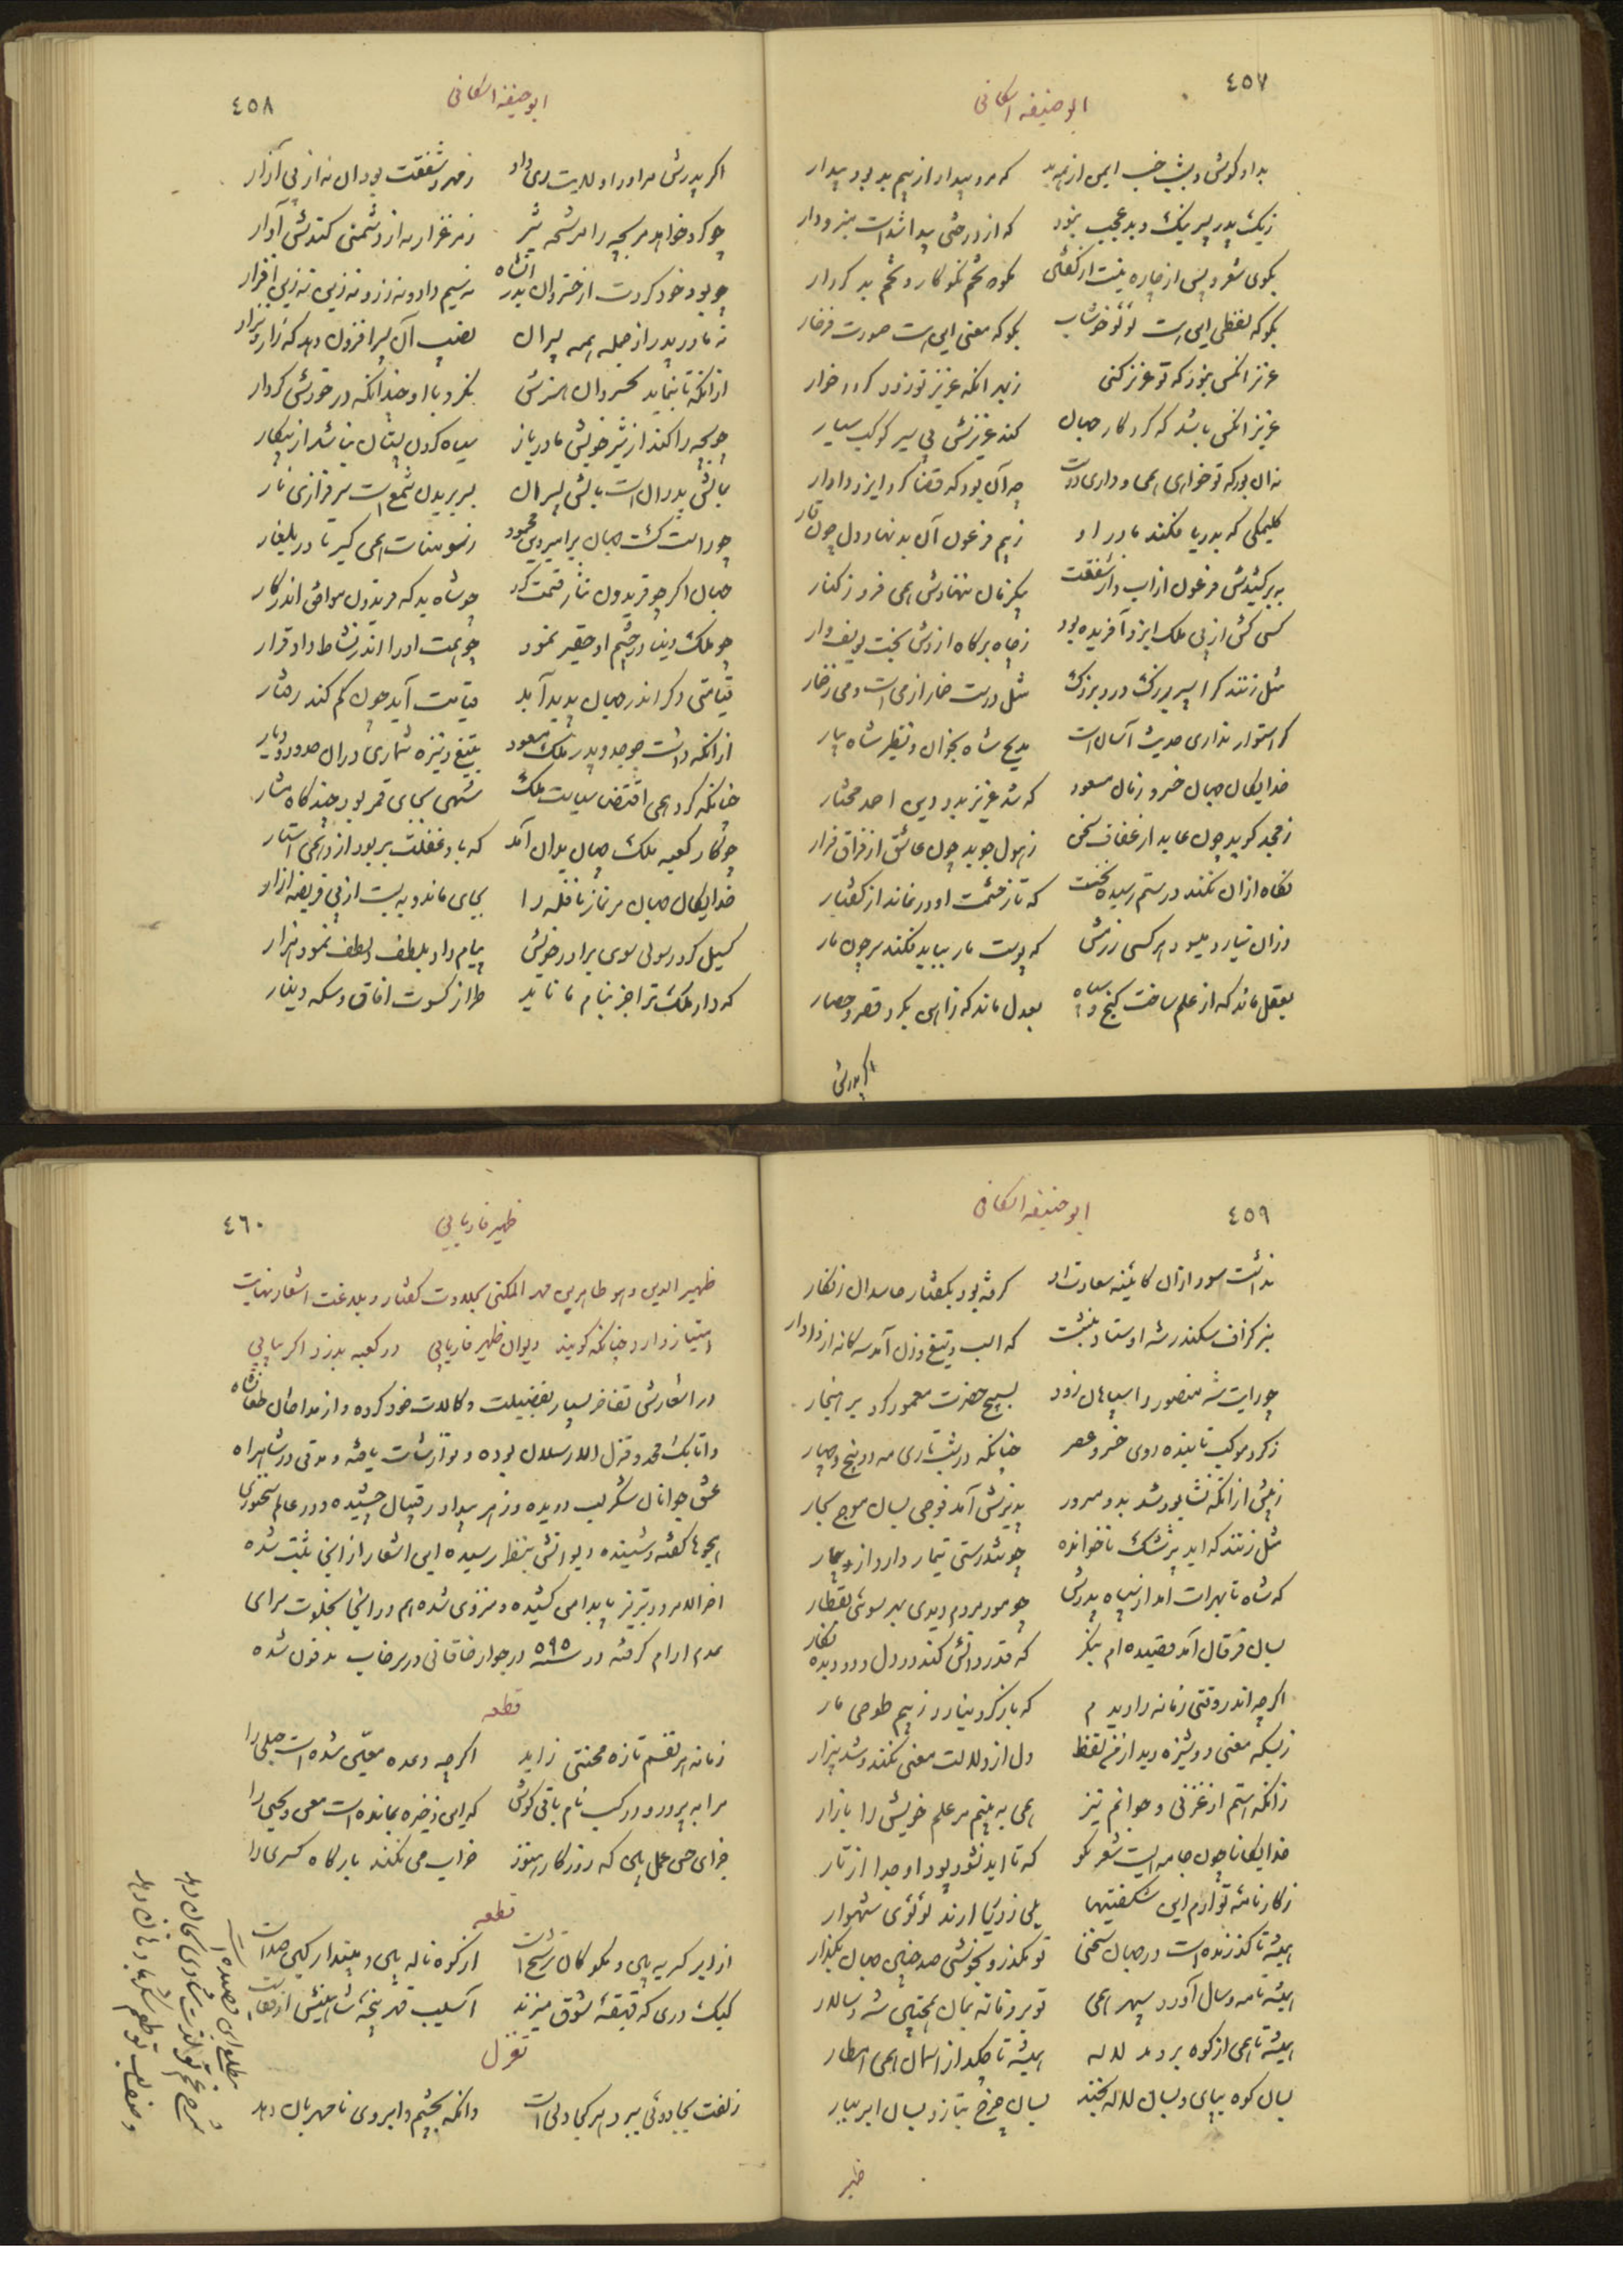 ٤٥٧
ابوحنیفه اسکافی
بداد کوش و بشب خسب ایمن از همه بد که مرد بیداد از بیم بد بود بیدار
زیک پدر پسر نیک و بد عجب نبود که از درختی پیدا شدست منبر و دار
بگوی شعر و پس از چاره نیست از گفتن نکوه تخم نکو کار و تخم بد کردار
بگو که لفظی این است لؤلؤ خوشاب بگو که معنی این است صورت فرخار
عزیز آنکس نبود که تو عزیز کنی زبهر آنکه عزیز تو زود گردد خوار
عزیز آنکس باشد که کردگار جهان کند عزیزش بی سیر کوکب سیار
نه آن بود که تو خواهی همی و داری دوست چه آن بود که قضا کرد ایزد دادار
کلیمکی که بدریا فکند مادر او زبیم فرعون آن بدنهاد دل چون قار
نه برکشیدش فرعون از آب و از شفقت یکزمان ننهادش همی فرو زکنار
کسی کش از پی ملک ایزد آفریده بود زچاه برگاه آردش بخت یوسف وار
مثل زنند کرا سر بزرگ درد بزرگ مثل درست خمار از می است و می زخمار
گر استوار نداری حدیث آسان است مدیح شاه بخوان و نظیر شاه بیار
خدایگان جهان خسرو زمان مسعود که شد عزیز بدو دین احمد مختار
زمجد گوید چون عابد از عفاف سخن زهول جوید چون عاشق از فراق فرار
نگاه از آن نکند در ستم رسیده نخست که تا زحشمت او درنماند از گفتار
وزان نیارد بسپود هر کسی رزمش که پوست مار بباید فکند سر چون مار
بعقل ماند که از علم ساخت گنج و سپاه بعدل ماند که زاهن بکرد قصر و حصار
اگر پدرش
٤٥٨
ابوحنیفه اسکافی
اگر پدرش مر او را ولایت ری داد زمهر و شفقت بود آن نه از پی آزار
چو کرد خواهد مر بچه را مرشح شیر زمرغزار نه از دشمنی کندش آوار
چو بود خود کردت از خسروان بدر آنشاه نه سیم داد و نه زر و نه زین نه زین افزار
نه مادر و پدر از جمله همه پسران نصیب آن پسر افزون دهد که زار و نزار
از آنکه تا بنماید بخسروان هنرش نکرد با او چندانکه درخورش کردار
چو بچه را کند از شیر خویش مادر باز سیاه کردن پستان نباشد از پیکار
بمالش پدران است بالش پسران بسر بریدن شمع است سرفرازی نار
چو راست گشت جهان بر امیر دین محمود زسومنات همی گیر تا در بلغار
جهان اگر چو فریدون نثار قسمت کرد چو شاه بد که فریدون موافق اندر کار
چو ملک دنیا در چشم او حقیر نمود چو همت او را اندر نشاط داد قرار
قیامتی دگر اندر جهان پدید آمد قیامت آید چون گم کند رشار
از آنکه داشت چو جد و پدر ملک مسعود بتیغ و نیزه شماری در آن حدود و دیار
چنانکه کرد همی اقتضا سیاست ملک سهی بجای قمر بود چندگاه مشار
چو کار کعبه ملک جهان بدان آمد که باد غفلت بربود ازو همی استار
خدایگان جهان مر نماز نافله را بجای ماند و ببست از پی فریضه ازار
گسیل کرد رسولی سوی برادر خویش پیام داد بلطف و لطف نمود هزار
که دار ملک ترا جز بنام ما ناید طراز کسوت آفاق و سکه دینار
٤٥٩
ابوحنیفه اسکافی
نداشت سود از آن کاینه سعادت او گرفته بود بگفتار حاسدان زنگار
نبرگزاف سکندر شه اوستاد نبشت که اسب و تیغ و زن آمد سه گانه از در دار
چو رایت شه منصور را سپاهان زود بسیج حضرت معمور کرد بر هنجار
زگرد موکب تابنده روی خسرو عصر چنانکه در شب تاری مه دو پنج و چهار
زپیش از آنکه نشابور شد بدو مسرور پذیرش آمد فوجی بسان موج بحار
مثل زنند که آید پزشک ناخوانده چو تندرستی تیمار دارد از بیمار
که شاه تا بهرات آمد از سپاه پدرش چو مور مردم دیدی بهر سوئی بقطار
بسان فرقان آمد قصیده ام بنگر که قدر دانش کند در دل و دو دیده نگار
اگرچه اندر وقتی زمانه را دیدم که باز کرد نیارد زبیم طومار
زبسکه معنی دوشیزه دید از من لفظ دل از دلالت معنی بکند و شد بیزار
از آنکه هستم از غزنی و جوانم نیز همی نه بینم مر علم خویش را بازار
خدایگانا چون جامه ایست شعر نکو که تا ابد نشود پود او جدا از تار
زکارنامه تو آرم این شگفتیها بلی زدریا آرند لؤلؤی شهوار
همیشه تا گذرنده است در جهان سختی تو مگذر و بخوشی صد چنین جهان بگذار
همیشه تا مه و سال آورد سپهر همی تو بر زمانه بمان همچنین شه و سالار
همیشه تا همی از کوه بردمد لاله همیشه تا چکد از آسمان همی امطار
بسان کوه بپای و بسان لاله بخند بسان چرخ بتاز و بسان ابر ببار
ظهیر
٤٦٠
ظهیر فاریابی
ظهیر الدین و هو طاهر بن محمد المکنی بحلاوت گفتار و بلاغت اشعار نهایت
امتیاز دارد چنانکه گویند دیوان ظهیر فاریابی در کعبه بدزد اگر بیابی
در اشعارش تفاخر بسیار بفضیلت و کمالات خود کرده و از مداحان طغانشاه
و اتابک محمد و قزل ارسلان بوده و نوازشات یافته و مدتی در شاهراه
عشق جوانان شکرلب دویده و زهر بیداد رقیبان چشیده و در عالم سخنوری
هجوها گفته و شنیده دیوانش بنظر رسیده این اشعار از آن ثبت شده
آخر الامر در تبریز پا بدامن کشیده و منزوی شده هم در آنجا بخلوت سرای
عدم آرام گرفته در سنه ٥٩٥ در جوار خاقانی در سرخاب مدفون شده
قطعه
زمانه هر نفسم تازه محنتی زاید اگرچه وعده معین شده است حبلی را
مرا به پرورد و در کسب نام باقی کوش که این ذخیره بمانده است معن و یحیی را
جزای حسن عمل بین که روزگار هنوز خراب می نکند بارگاه کسری را
قطعه
از ابر گریه بین و مگو کان ترشح است از کوه ناله بین و مپندار کین صداست
کبک دری که قهقهه شوق میزند آسیب قهر پنجه شاهینش از قفاست
تغزل
زلفت بجادوئی ببرد هر کجا دلی است وانگه بچشم و ابروی نامهربان دهد
مطلع این قصیده
شرح غم تو لذت شادی بجان دهد
وصف لب تو طعم شکر با دهان دهد